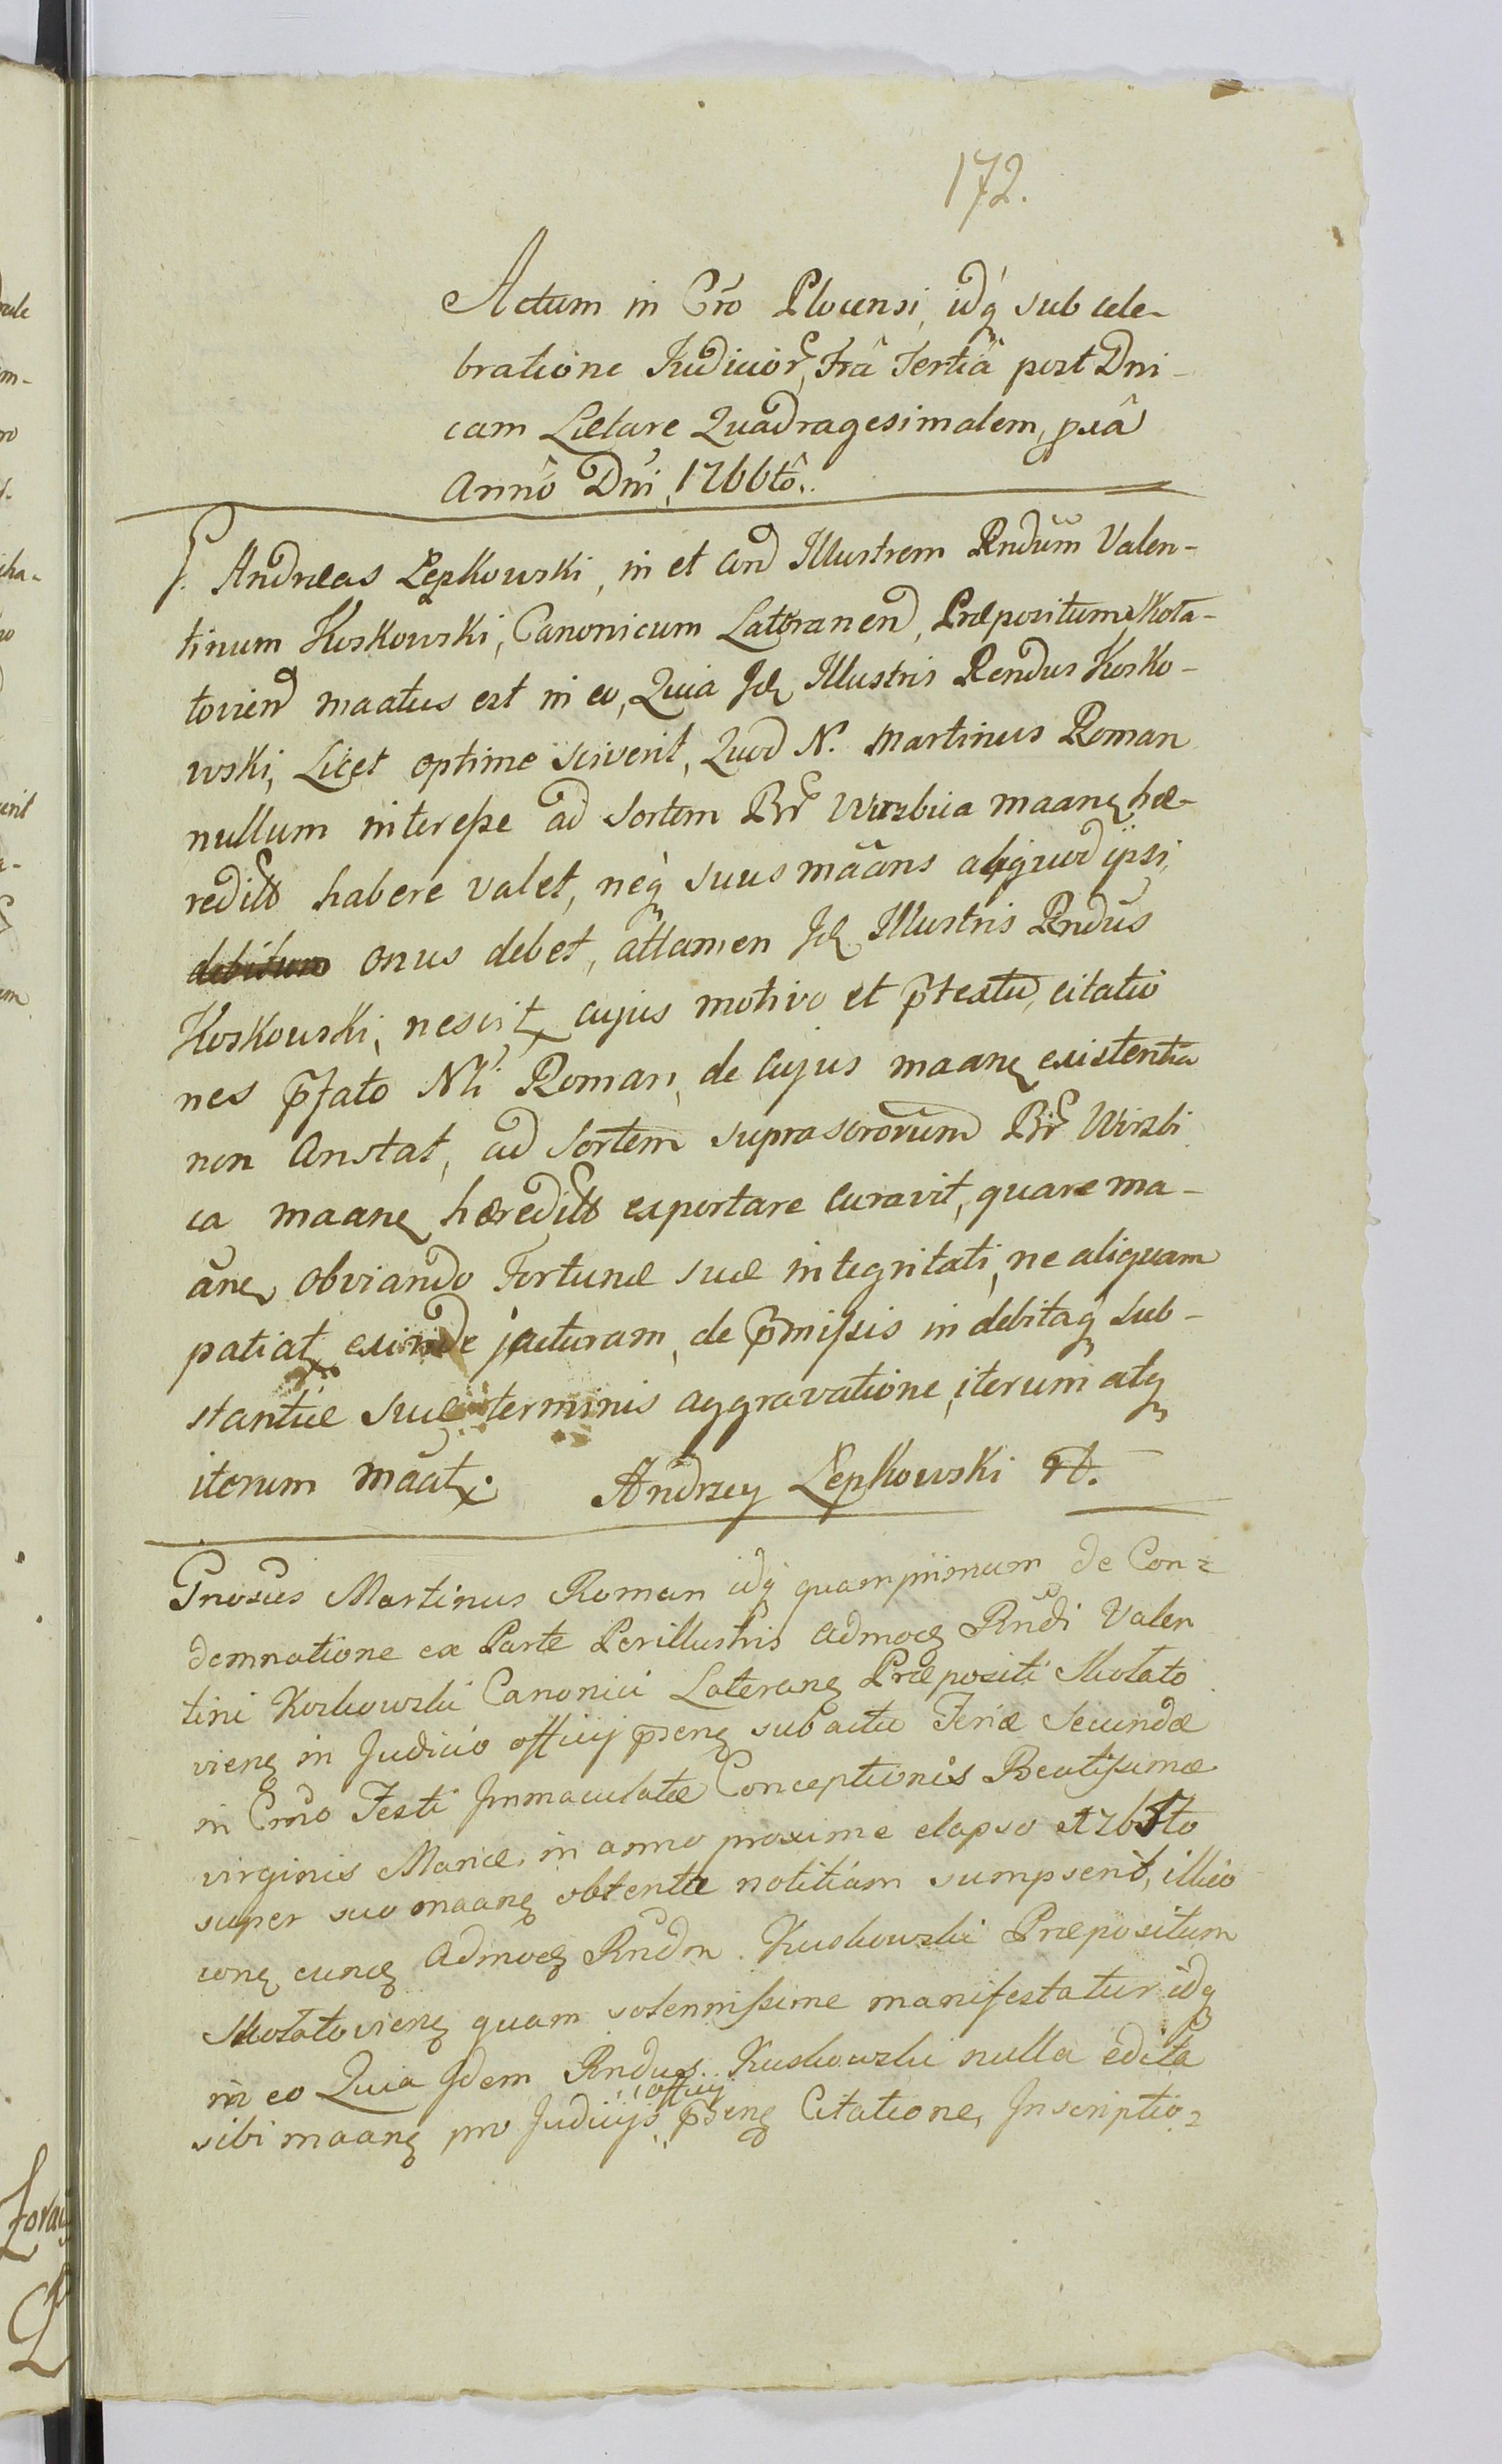 172.
Actum in Crõ Plocensi, idq́ sub cele-
bratione Judicior, Frâ Tertiâ post Dni-
cam Lætare Quadragesimalem, pxâ
Annô Dni, 1766tô.
G. Andreas Lepkowski, in et cnd Illustrem Rndum Valen-
tinum Koskowski, Canonicum Lateranen, Præpositum Skota-
tovien maatus est in eo, Quia Id Illustris Rendus Kosko-
wski, Licet optime sciverit, Quod N. Martinus Roman
nullum interesse ad Sortem Br Wirzbica maans hæ-
redit habere valet, neq́ suus mãans aliquod ipsi
debitum onus debet, attamen Id Illustris Rndus
Koskowski, nescit cujus motivo et p̃textu, citatio
nes p̃fato Nli Roman, de cujus maans existentia
non Constat, ad Sortem suprascrorum Br Wirzbi
ca maans hæredit exportare curavit, quare ma-
ans obviando Fortunæ suæ integritati, ne aliquam
patiat exinde jacturam, de p̃missis indebitaq́ sub-
stantiæ suæ terminis aggravatione, iterum atq́
iterum mãat. Andrzey Lepkowski
Gnosus Martinus Roman idq́ quamprimum de Con=
demnatione ex Parte Perillustris admod Rndi Valen
tini Koskowski Canonici Laterans Præpositi Skotato
viens in Judicio officij p̃sens sub actu Feriæ Secundæ
in Crno Festi Immaculatæ Conceptionis Beatissimæ
virginis Mariæ, in anno proxime elapso 1765to
super suo maans obtentæ notitiam sumpserit, illico
cons eund admod Rndm. Kuskowski Præpositum
Skotatoviens quam solennissime manifestatur idq́
in eo Quia Idem Rndus Kuskowski nulla edita
sibi maans pro Judicijs officij p̃sens Citatione, Inscriptio=